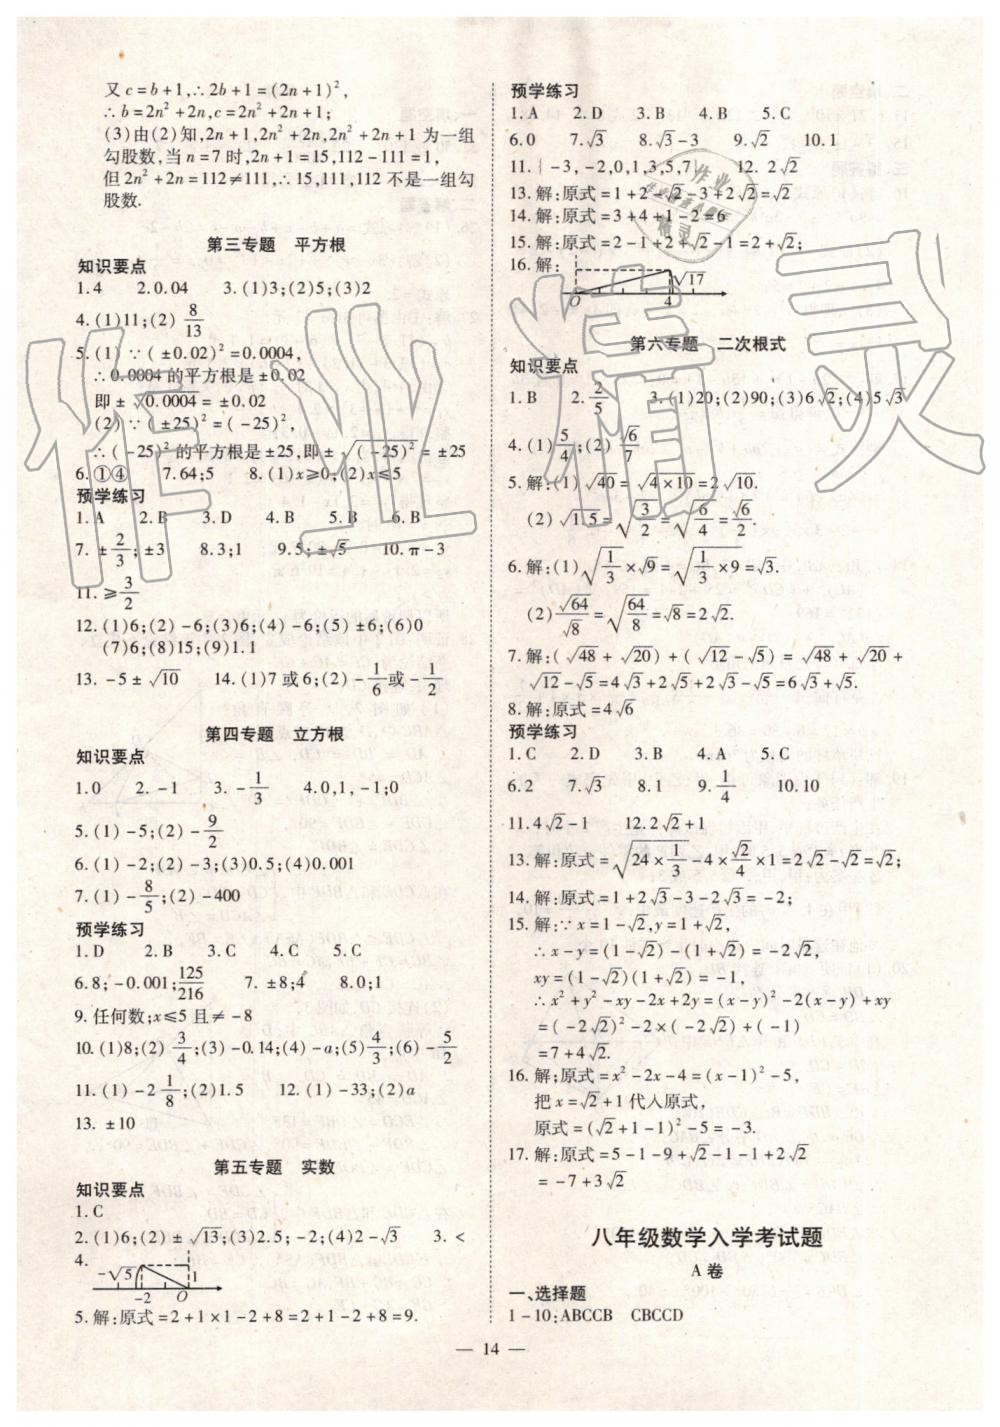 又 c=b+1,∴2b+1=(2n+1)²,
∴b=2n²+2n,c=2n²+2n+1;
(3)由(2)知,2n+1,2n²+2n,2n²+2n+1 为一组
勾股数,当 n=7 时,2n+1=15,112-111=1,
但 2n²+2n=112≠111,∴15,111,112 不是一组勾
股数.
第三专题 平方根
知识要点
1.4 2.0.04 3.(1)3;(2)5;(3)2
4.(1)11;(2)8/13
5.(1)∵(±0.02)²=0.0004,
∴0.0004 的平方根是±0.02
即±√0.0004=±0.02
(2)∵(±25)²=(-25)²,
∴(-25)² 的平方根是±25,即±√(-25)²=±25
6.①④ 7.64;5 8.(1)x≥0;(2)x≤5
预学练习
1.A 2.B 3.D 4.B 5.B 6.B
7.±2/3;±3 8.3;1 9.5;±√5 10.π-3
11.≥3/2
12.(1)6;(2)-6;(3)6;(4)-6;(5)±6;(6)0
(7)6;(8)15;(9)1.1
13.-5±√10 14.(1)7 或 6;(2)-1/6或-1/2
第四专题 立方根
知识要点
1.0 2.-1 3.-1/3 4.0,1,-1;0
5.(1)-5;(2)-9/2
6.(1)-2;(2)-3;(3)0.5;(4)0.001
7.(1)-8/5;(2)-400
预学练习
1.D 2.B 3.C 4.C 5.C
6.8;-0.001;125/216 7.±8;4 8.0;1
9.任何数;x≤5 且≠-8
10.(1)8;(2)3/4;(3)-0.14;(4)-a;(5)4/3;(6)-5/2
11.(1)-2 1/8;(2)1.5 12.(1)-33;(2)a
13.±10
第五专题 实数
知识要点
1.C
2.(1)6;(2)±√13;(3)2.5;-2;(4)2-√3 3.<
4.
-√5 1
-2 O
5.解:原式=2+1×1-2+8=2+1-2+8=9.
预学练习
1.A 2.D 3.B 4.B 5.C
6.0 7.√3 8.√3-3 9.√2 10.1
11.{-3,-2,0,1,3,5,7} 12.2√2
13.解:原式=1+2-√2-3+2√2=√2
14.解:原式=3+4+1-2=6
15.解:原式=2-1+2+√2-1=2+√2;
16.解:
√17
O 4
第六专题 二次根式
知识要点
1.B 2.2/5 3.(1)20;(2)90;(3)6√2;(4)5√3
4.(1)5/4;(2)√6/7
5.解:(1)√40=√4×10=2√10.
(2)√1.5=√3/2=√6/4=√6/2.
6.解:(1)√1/3×√9=√1/3×9=√3.
(2)√64/√8=√64/8=√8=2√2.
7.解:(√48+√20)+(√12-√5)=√48+√20+
√12-√5=4√3+2√5+2√3-√5=6√3+√5.
8.解:原式=4√6
预学练习
1.C 2.D 3.B 4.A 5.C
6.2 7.√3 8.1 9.1/4 10.10
11.4√2-1 12.2√2+1
13.解:原式=√24×1/3-4×√2/4×1=2√2-√2=√2;
14.解:原式=1+2√3-3-2√3=-2;
15.解:∵x=1-√2,y=1+√2,
∴x-y=(1-√2)-(1+√2)=-2√2,
xy=(1-√2)(1+√2)=-1,
∴x²+y²-xy-2x+2y=(x-y)²-2(x-y)+xy
=(-2√2)²-2×(-2√2)+(-1)
=7+4√2.
16.解;原式=x²-2x-4=(x-1)²-5,
把 x=√2+1 代人原式,
原式=(√2+1-1)²-5=-3.
17.解:原式=5-1-9+√2-1-1+2√2
=-7+3√2
八年级数学入学考试题
A 卷
一、选择题
1-10:ABCCB CBCCD
— 14 —
作业精灵